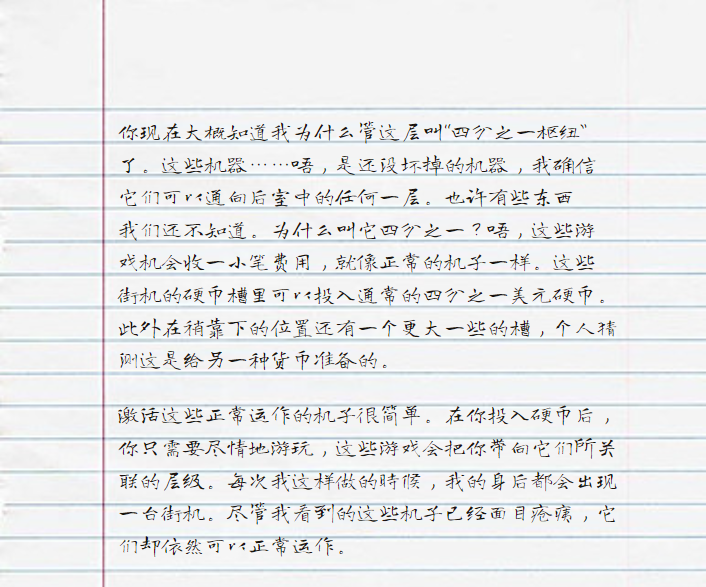 你现在大概知道我为什么管这层叫“四分之一枢纽”
了。这些机器……唔，是还没坏掉的机器，我确信
它们可以通向后室中的任何一层。也许有些东西
我们还不知道。为什么叫它四分之一？唔，这些游
戏机会收一小笔费用，就像正常的机子一样。这些
街机的硬币槽里可以投入通常的四分之一美元硬币。
此外在稍靠下的位置还有一个更大一些的槽，个人猜
测这是给另一种货币准备的。
激活这些正常运作的机子很简单。在你投入硬币后，
你只需要尽情地游玩，这些游戏会把你带向它们所关
联的层级。每次我这样做的時候，我的身后都会出现
一台街机。尽管我看到的这些机子已经面目疮痍，它
们却依然可以正常运作。